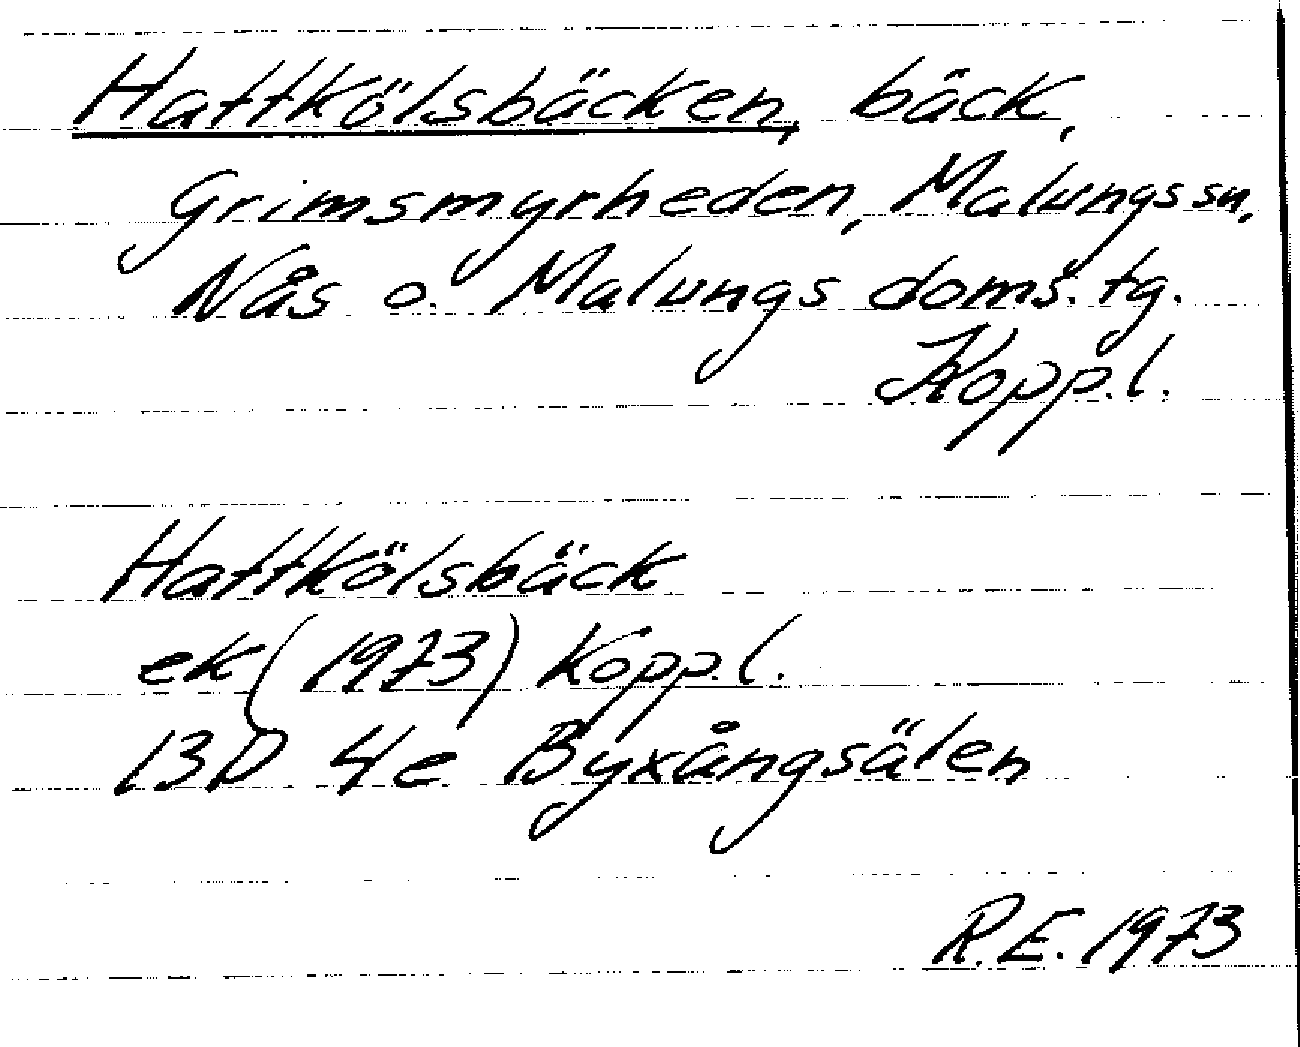 Hattkölsbäcken, bäck,
Grimsmyrheden, Malungs sn,
Nås o. Malungs doms. tg.
Kopp. l.
Hattkölsbäck
ek (1973) Kopp. l.
13D 4e Byxångsälen
R.E. 1973